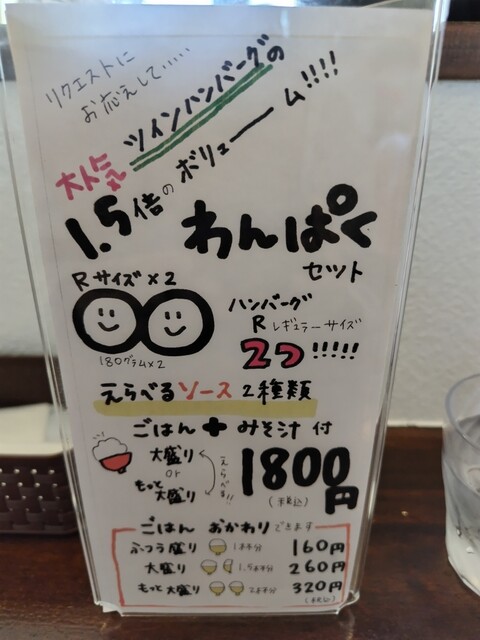 リクエストに
お応えして……
大人気 ツインハンバーグの
1.5倍の ボリューーム!!!!
わんぱく
セット
Rサイズ×2
180グラム×2
ハンバーグ
R レギュラーサイズ
2つ!!!!!
えらべるソース 2種類
ごはん + みそ汁 付
大盛り
or
もっと大盛り
えらべる!!
1800円
(税込)
ごはん おかわり できます
ふつう盛り 1杯分 160円
大盛り 1.5杯分 260円
もっと大盛り 2杯分 320円
(税込)